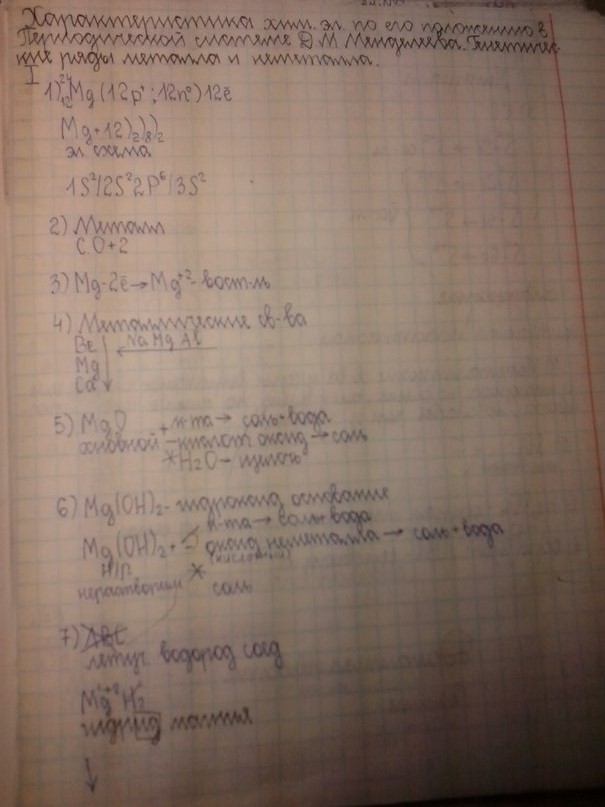 Характеристика хим. эл. по его положению в
Периодической системе Д.М Менделеева. Генетичес-
кие ряды металла и неметалла.
I
1) ²⁴₁₂Mg (12p⁺; 12n⁰) 12ē
Mg+12 )₂)₈)₂
эл. схема
1S²/2S²2P⁶/3S²
2) Металл
С.О+2
3) Mg-2ē→Mg⁺²- вост-ль
4) Металлические св-ва
Be Na Mg Al
Mg
Ca
5) MgO + к-та → соль+вода
основной – кислот оксид → соль
*H2O → щелочь
6) Mg(OH)₂- гидроксид основание
к-та → соль+вода
Mg(OH)₂ + – оксид неметалла → соль+вода
Н/р (кислотный)
нерастворим * соль
7)
летуч. водород соед
Mg⁺²H₂⁻
гидрид магния